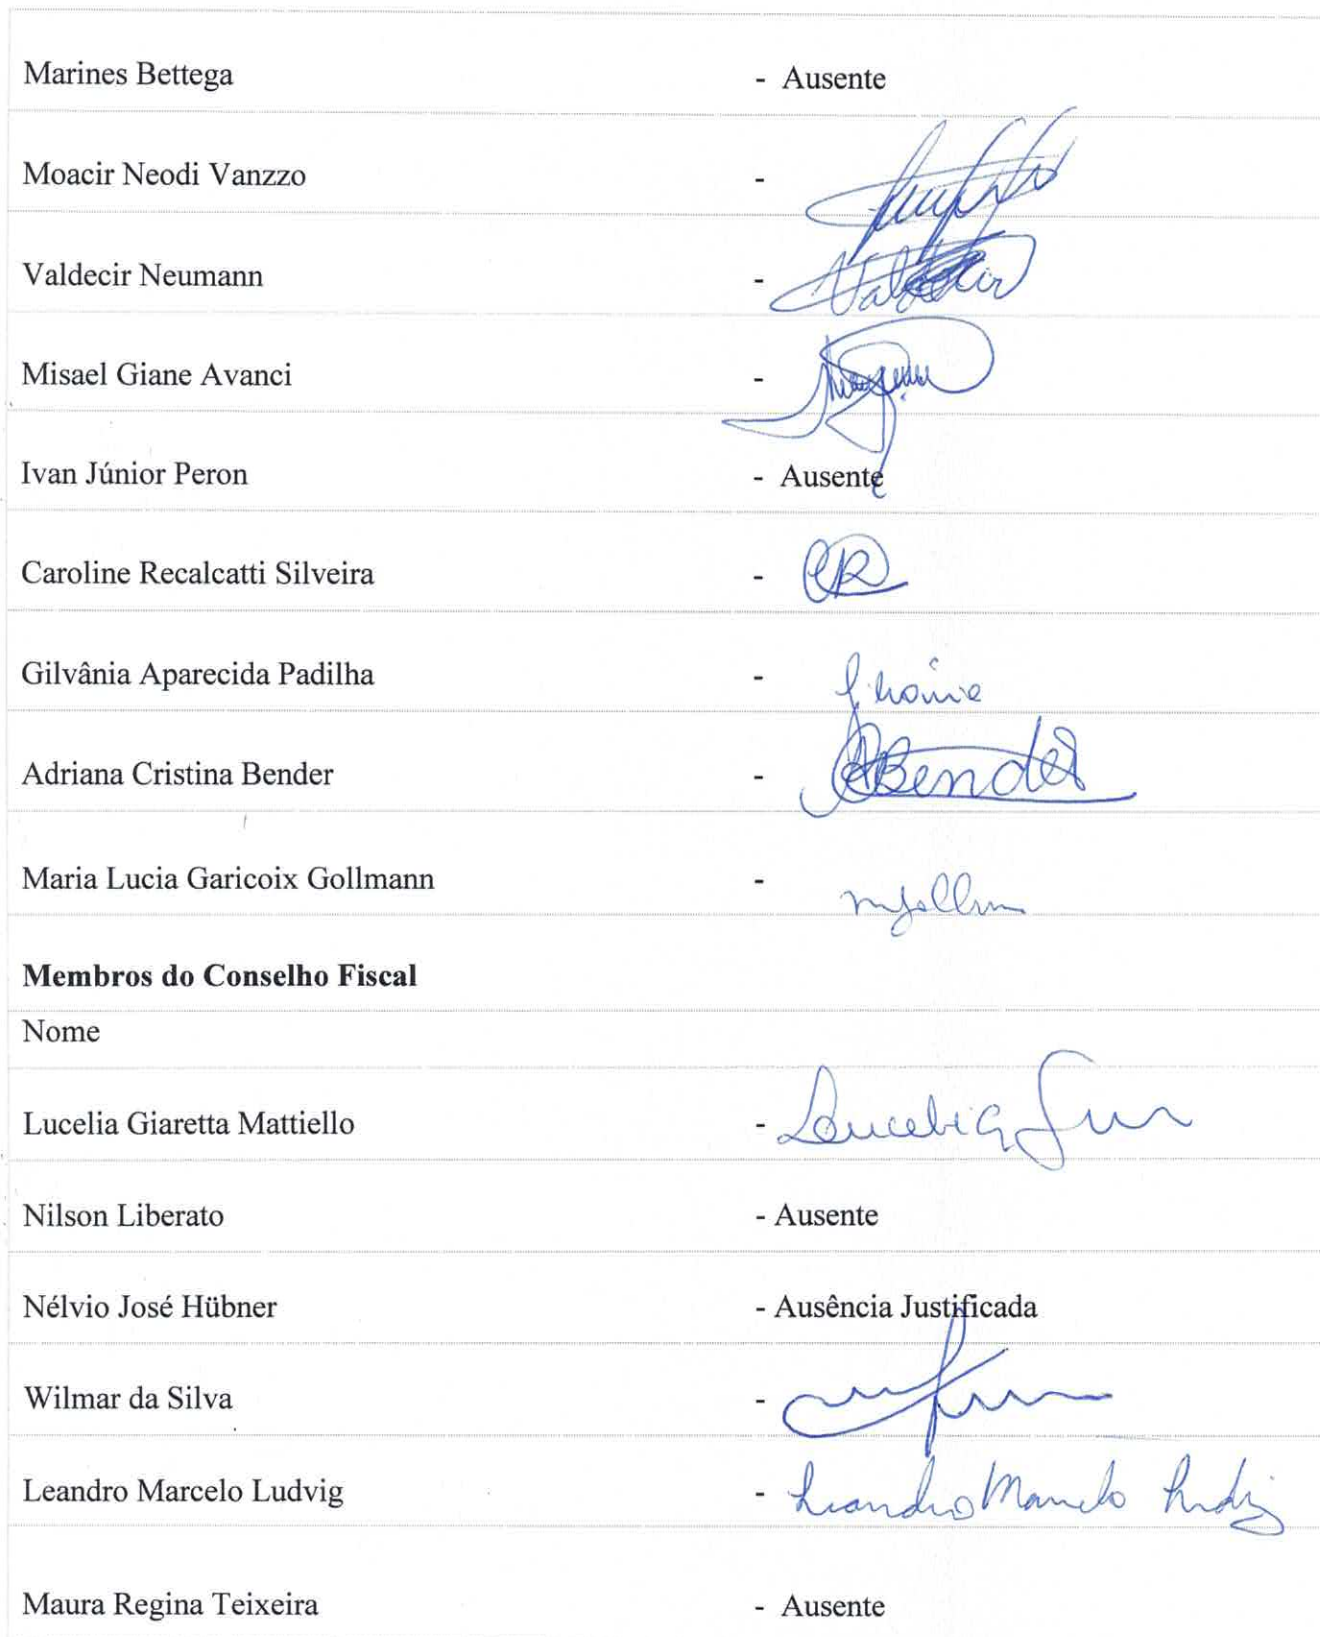 Marines Bettega - Ausente
Moacir Neodi Vanzzo -
Valdecir Neumann - Valdecir
Misael Giane Avanci -
Ivan Júnior Peron - Ausente
Caroline Recalcatti Silveira - CR
Gilvânia Aparecida Padilha -
Adriana Cristina Bender - Bender
Maria Lucia Garicoix Gollmann -
Membros do Conselho Fiscal
Nome
Lucelia Giaretta Mattiello - Lucelia G
Nilson Liberato - Ausente
Nélvio José Hübner - Ausência Justificada
Wilmar da Silva -
Leandro Marcelo Ludvig - Leandro Marcelo Ludvig
Maura Regina Teixeira - Ausente